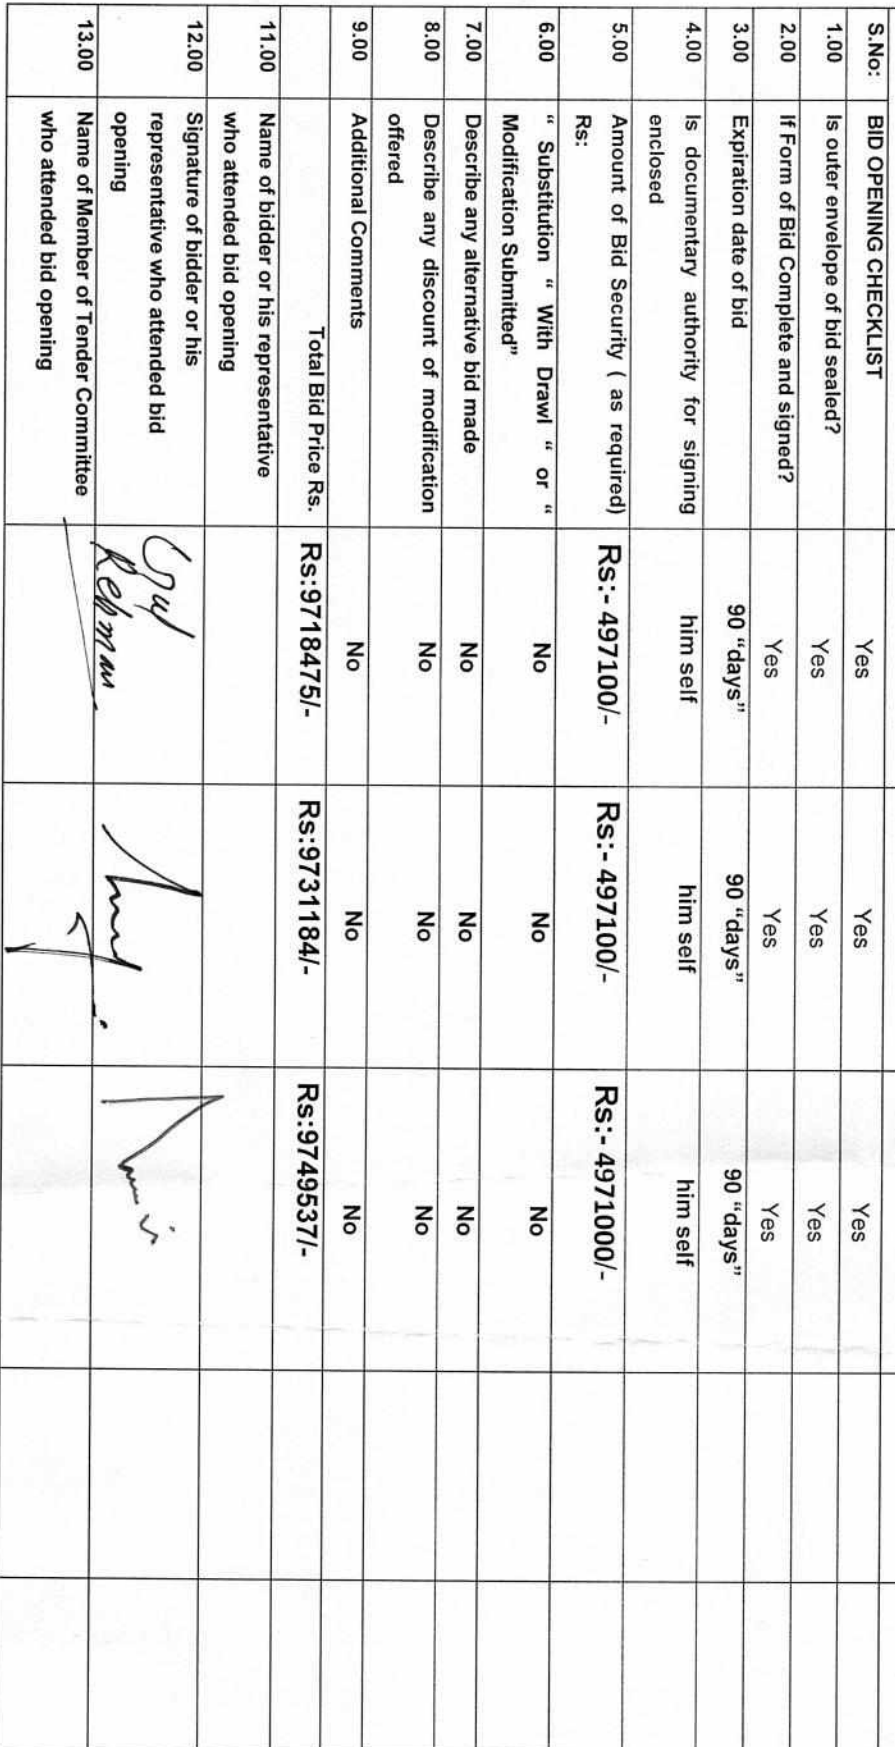 S.No: BID OPENING CHECKLIST Yes Yes Yes
1.00 Is outer envelope of bid sealed? Yes Yes Yes
2.00 If Form of Bid Complete and signed? Yes Yes Yes
3.00 Expiration date of bid 90 “days” 90 “days” 90 “days”
4.00 Is documentary authority for signing him self him self him self
enclosed
5.00 Amount of Bid Security ( as required) Rs:- 497100/- Rs:- 497100/- Rs:- 4971000/-
Rs:
6.00 “ Substitution “ With Drawl “ or “ No No No
Modification Submitted”
7.00 Describe any alternative bid made No No No
8.00 Describe any discount of modification No No No
offered
9.00 Additional Comments No No No
Total Bid Price Rs. Rs:9718475/- Rs:9731184/- Rs:9749537/-
11.00 Name of bidder or his representative
who attended bid opening
12.00 Signature of bidder or his
representative who attended bid
opening
Rehman
13.00 Name of Member of Tender Committee
who attended bid opening